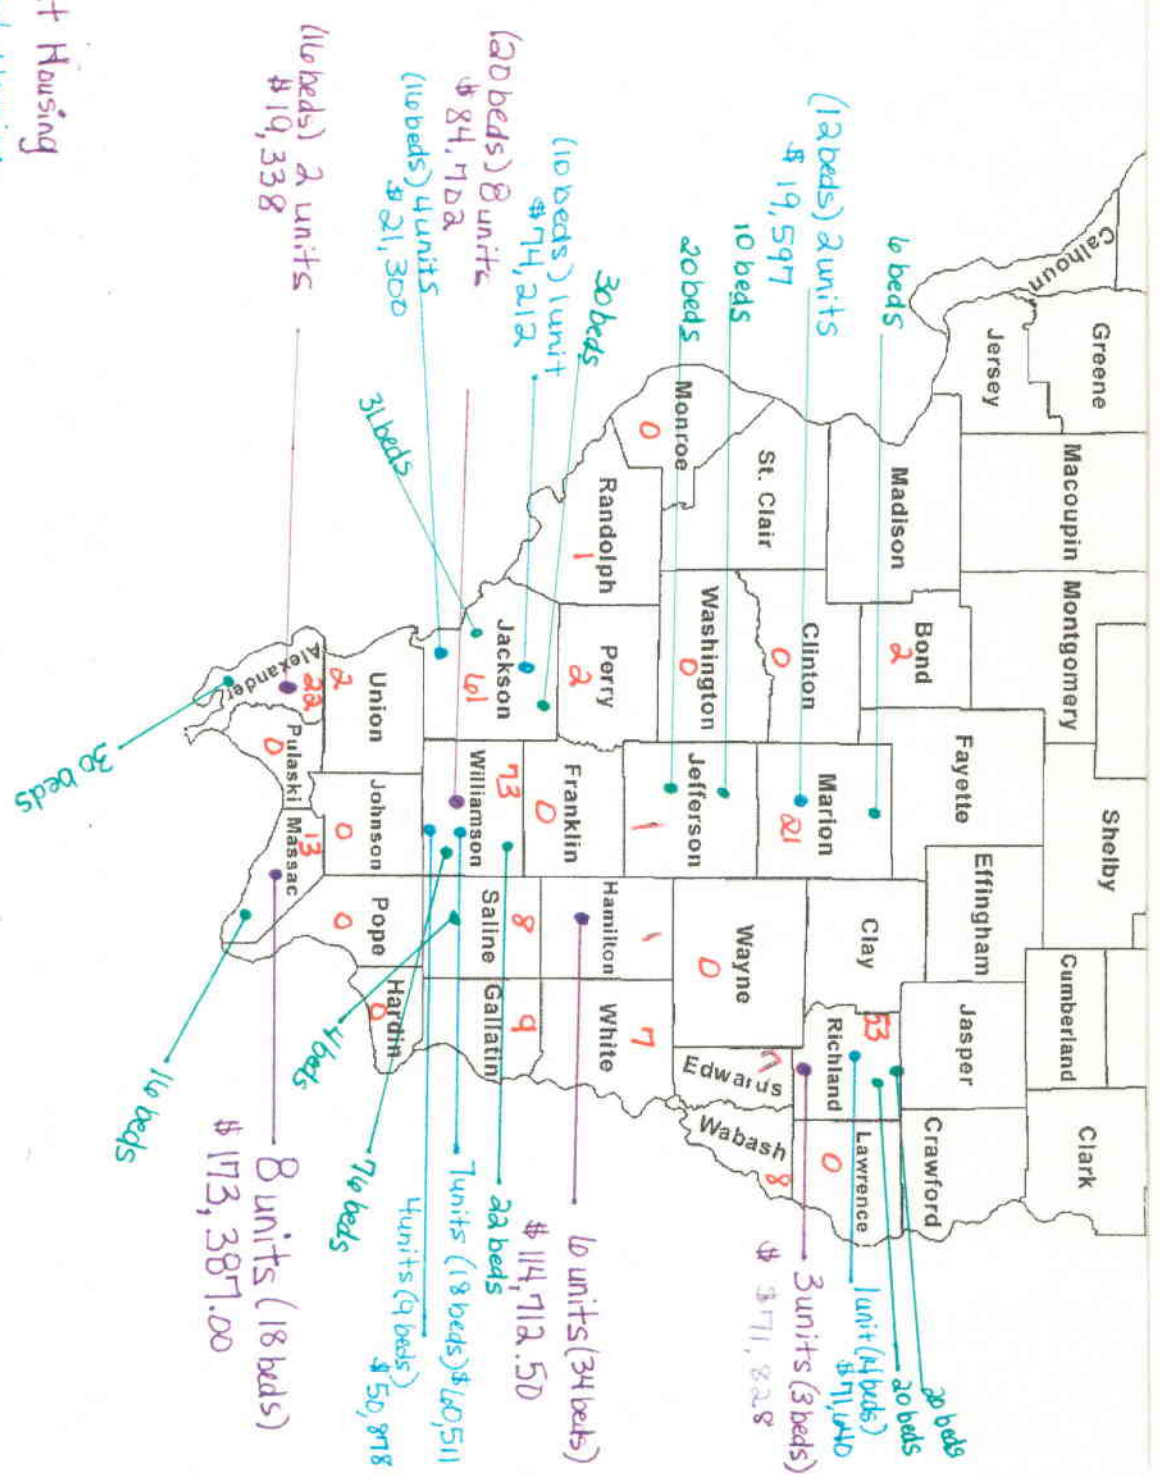 t Housing
Calhoun
Greene
Jersey
Macoupin
Montgomery
Shelby
Cumberland
Clark
Madison
Bond
2
Fayette
Effingham
Jasper
Crawford
St. Clair
Clinton
0
Marion
21
Clay
Richland
53
Lawrence
0
Monroe
0
Washington
0
Jefferson
1
Wayne
0
Edwards
7
Wabash
8
Randolph
1
Perry
2
Franklin
0
Hamilton
1
White
7
Jackson
61
Williamson
73
Saline
8
Gallatin
9
Union
2
Johnson
0
Pope
0
Hardin
0
Alexander
22
Pulaski
0
Massac
13
6 beds
(12 beds) 2 units
$ 19,597
10 beds
20 beds
30 beds
(10 beds) 1 unit
$74,212
(20 beds) 8 units
$ 84,702
(16 beds) 4 units
$21,300
31 beds
(16 beds) 2 units
$ 19,338
30 beds
16 beds
8 units (18 beds)
$ 173,387.00
4 beds
76 beds
4 units (9 beds)
$50,878
7 units (18 beds) $60,511
22 beds
6 units (34 beds)
$ 114,712.50
3 units (3 beds)
$ 71,828
1 unit (14 beds)
$71,640
20 beds
20 beds